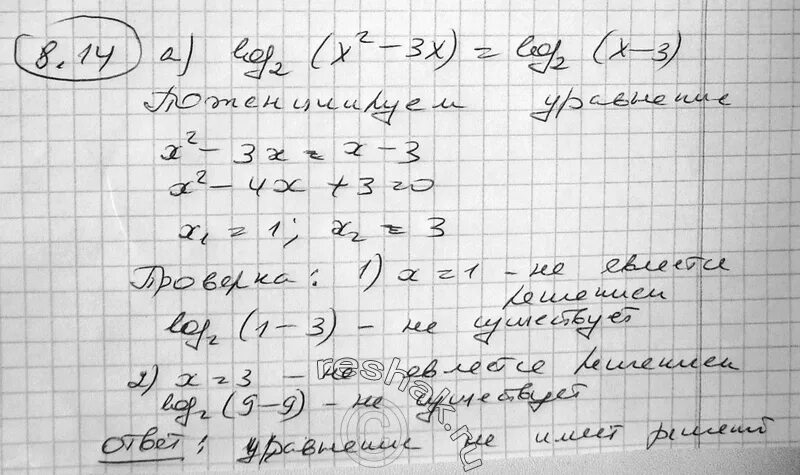 8.14 а) log₂ (x² − 3x) = log₂ (x − 3)
Потенцируем уравнение
x² − 3x = x − 3
x² − 4x + 3 = 0
x₁ = 1; x₂ = 3
Проверка: 1) x = 1 - не евляется
решением
log₂ (1 − 3) - не существует
2) x = 3 - не евляется решением
log₂ (9 − 9) - не существует
Ответ: уравнение не имеет решений
reshak.ru